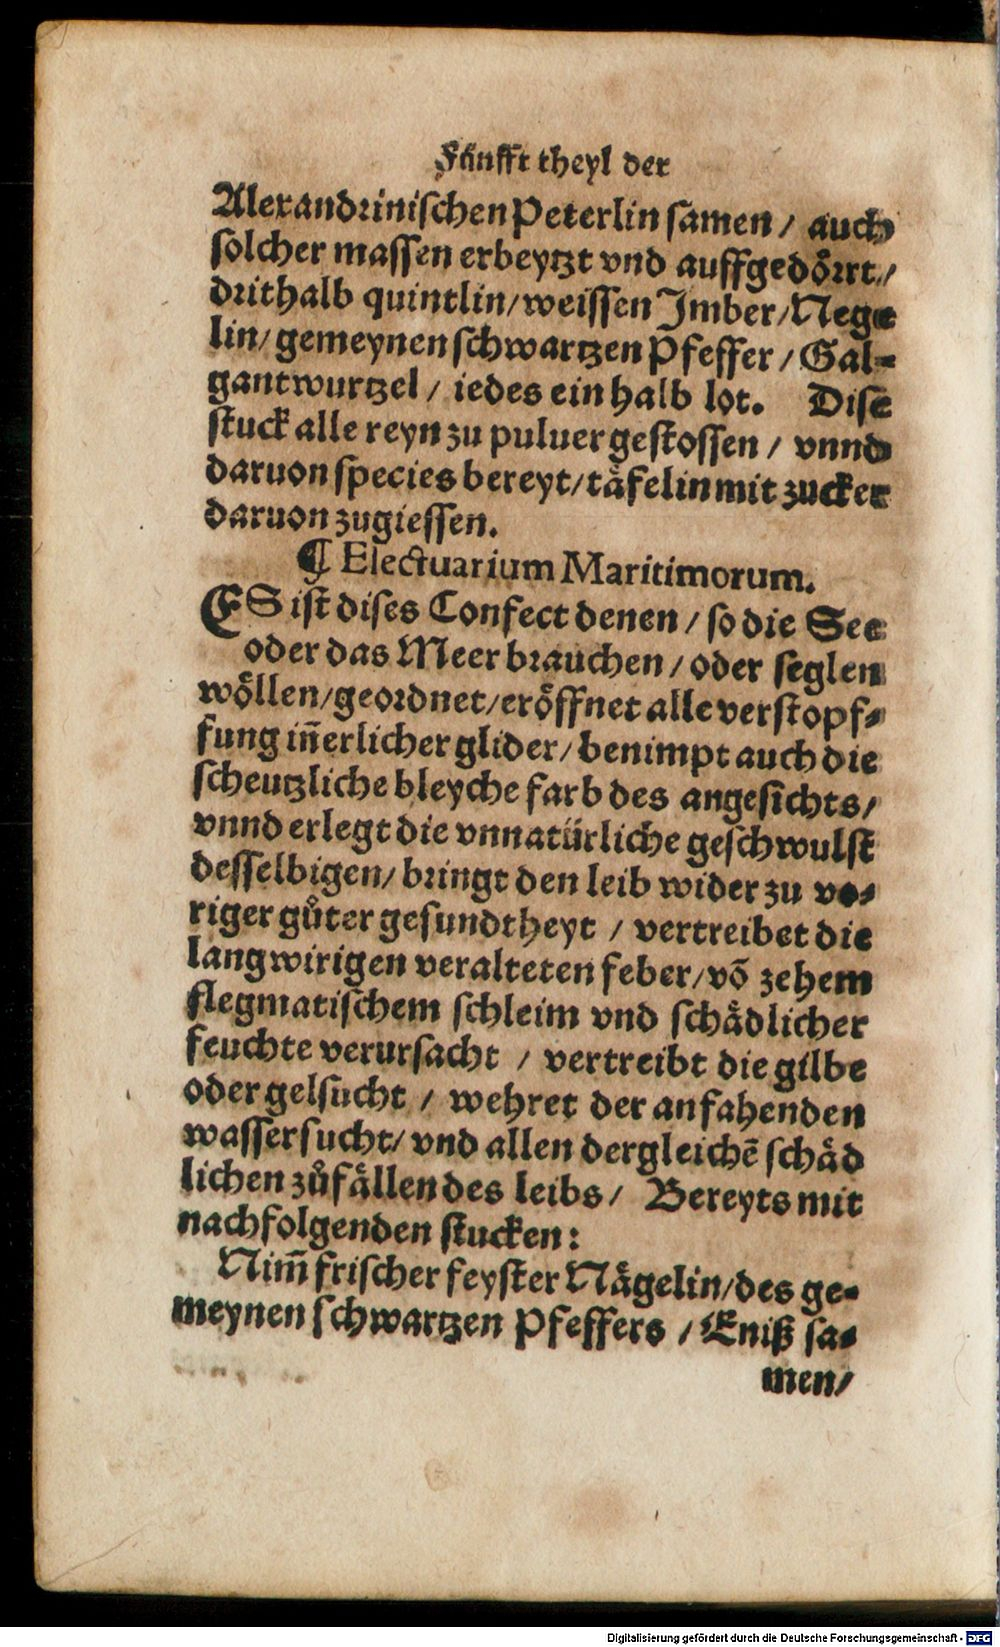 Fünfft theyl der
Alexandrinischen Peterlin samen / auch
solcher massen erbeytzt vnd auffgedörrt /
drithalb quintlin / weissen Jmber / Nege
lin / gemeynen schwartzen Pfeffer / Gal⸗
gantwurtzel / iedes ein halb lot. Dise
stuck alle reyn zu puluer gestossen / vnnd
daruon species bereyt / täfelin mit zucker
daruon zugiessen.
¶ Electuarium Maritimorum.
ES ist dises Confect denen / so die See
oder das Meer brauchen / oder seglen
wöllen / geordnet / eröffnet alle verstopf⸗
fung iñerlicher glider / benimpt auch die
scheutzliche bleyche farb des angesichts /
vnnd erlegt die vnnatürliche geschwulst
desselbigen / bringt den leib wider zu vo⸗
riger gůter gesundtheyt / vertreibet die
langwirigen veralteten feber / võ zehem
flegmatischem schleim vnd schädlicher
feuchte verursacht / vertreibt die gilbe
oder gelsucht / wehret der anfahenden
wassersucht / vnd allen dergleichẽ schäd
lichen zůfällen des leibs / Bereyts mit
nachfolgenden stucken:
Nim̃ frischer feyster Nägelin / des ge⸗
meynen schwartzen Pfeffers / Eniß sa⸗
men /
Digitalisierung gefördert durch die Deutsche Forschungsgemeinschaft - DFG